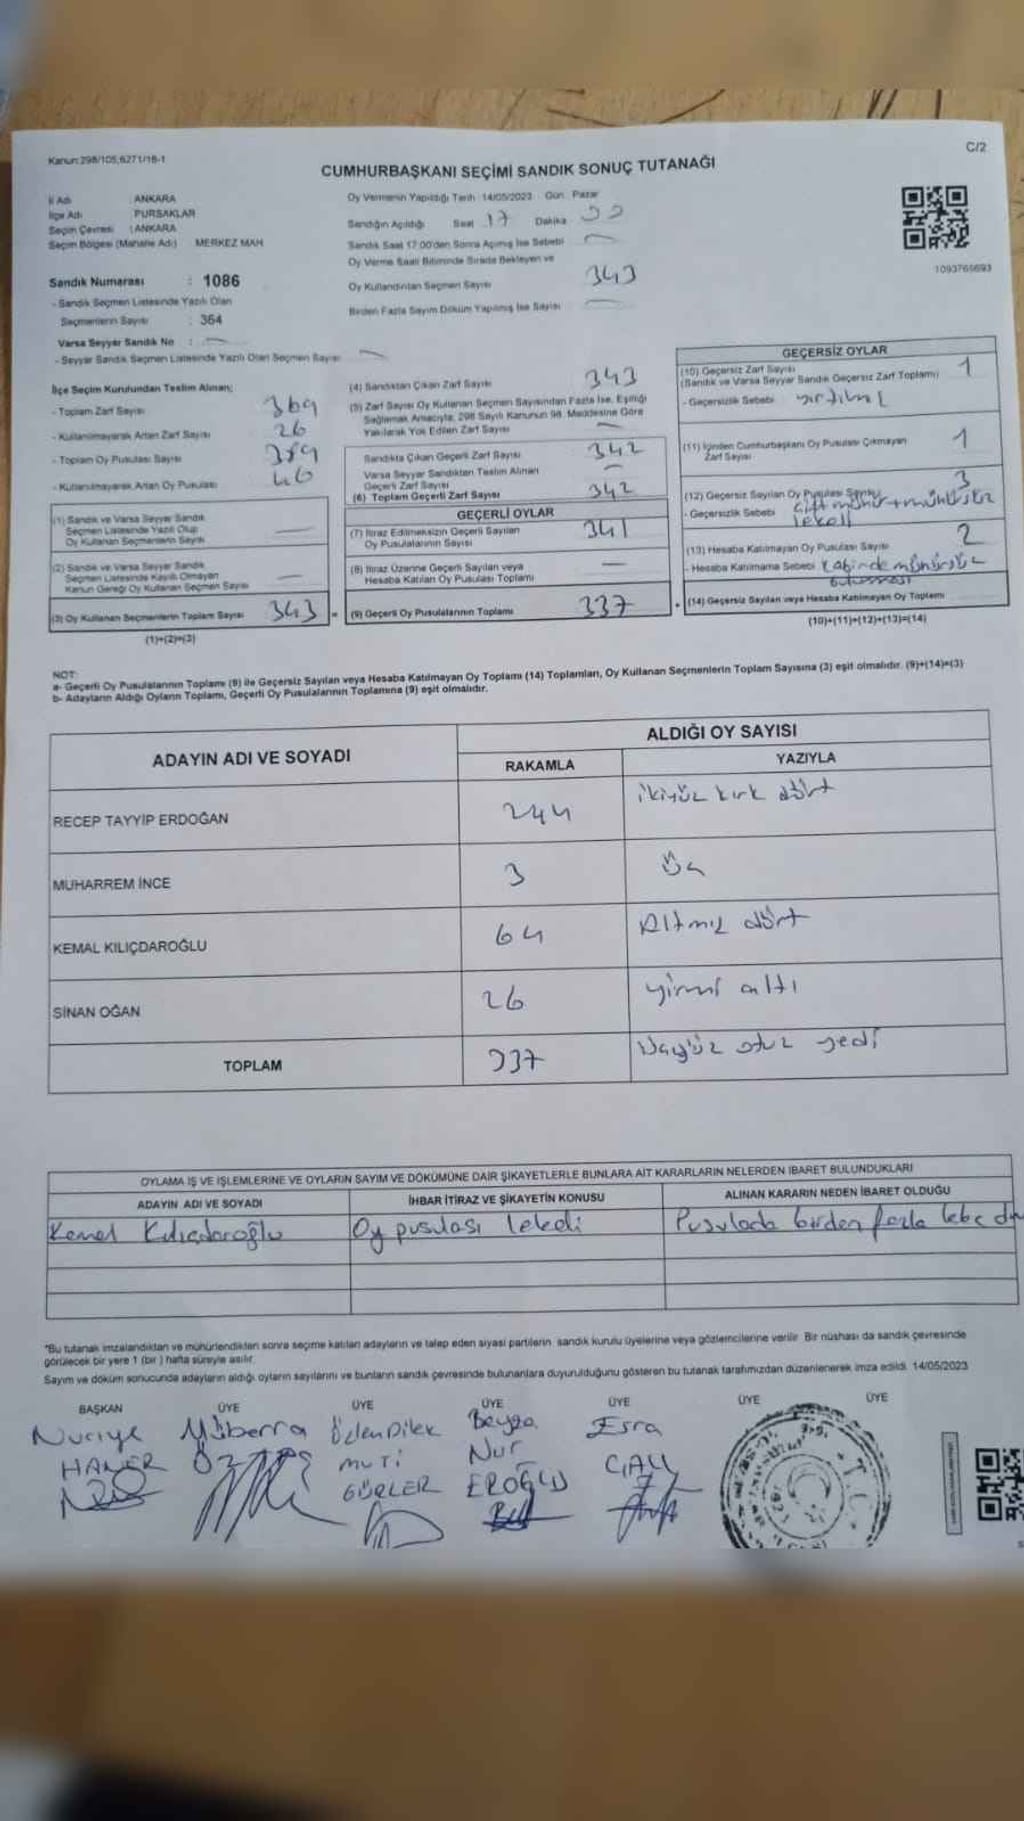 Kanun:298/105,6271/18-1
C/2
CUMHURBAŞKANI SEÇİMİ SANDIK SONUÇ TUTANAĞI
İl Adı : ANKARA
İlçe Adı : PURSAKLAR
Seçim Çevresi : ANKARA
Seçim Bölgesi (Mahalle Adı) : MERKEZ MAH
Sandık Numarası : 1086
- Sandık Seçmen Listesinde Yazılı Olan
Seçmenlerin Sayısı : 364
Varsa Seyyar Sandık No : —
- Seyyar Sandık Seçmen Listesinde Yazılı Olan Seçmen Sayısı —
Oy Vermenin Yapıldığı Tarih :14/05/2023 Gün: Pazar
Sandığın Açıldığı Saat 17 Dakika
Sandık Saat 17.00'den Sonra Açılmış İse Sebebi —
Oy Verme Saati Bitiminde Sırada Bekleyen ve
Oy Kullandırılan Seçmen Sayısı 343
Birden Fazla Sayım Döküm Yapılmış İse Sayısı —
1093765693
İlçe Seçim Kurulundan Teslim Alınan;
- Toplam Zarf Sayısı 369
- Kullanılmayarak Artan Zarf Sayısı 26
- Toplam Oy Pusulası Sayısı 389
- Kullanılmayarak Artan Oy Pusulası 46
(1) Sandık ve Varsa Seyyar Sandık
Seçmen Listesinde Yazılı Olup
Oy Kullanan Seçmenlerin Sayısı —
(2) Sandık ve Varsa Seyyar Sandık
Seçmen Listesinde Kayıtlı Olmayan
Kanun Gereği Oy Kullanan Seçmen Sayısı —
(3) Oy Kullanan Seçmenlerin Toplam Sayısı 343 =
(1)+(2)=(3)
(4) Sandıktan Çıkan Zarf Sayısı 343
(5) Zarf Sayısı Oy Kullanan Seçmen Sayısından Fazla İse, Eşitliği
Sağlamak Amacıyla, 298 Sayılı Kanunun 98. Maddesine Göre
Yakılarak Yok Edilen Zarf Sayısı —
Sandıkta Çıkan Geçerli Zarf Sayısı 342
Varsa Seyyar Sandıktan Teslim Alınan
Geçerli Zarf Sayısı —
(6) Toplam Geçerli Zarf Sayısı 342
GEÇERLİ OYLAR
(7) İtiraz Edilmeksizin Geçerli Sayılan
Oy Pusulalarının Sayısı 341
(8) İtiraz Üzerine Geçerli Sayılan veya
Hesaba Katılan Oy Pusulası Toplamı —
(9) Geçerli Oy Pusulalarının Toplamı 337 +
GEÇERSİZ OYLAR
(10) Geçersiz Zarf Sayısı
(Sandık ve Varsa Seyyar Sandık Geçersiz Zarf Toplamı) 1
- Geçersizlik Sebebi yırtılmış
(11) İçinden Cumhurbaşkanı Oy Pusulası Çıkmayan
Zarf Sayısı 1
(12) Geçersiz Sayılan Oy Pusulası Sayısı 3
- Geçersizlik Sebebi çift mühür + mühürsüz
lekeli
(13) Hesaba Katılmayan Oy Pusulası Sayısı 2
- Hesaba Katılmama Sebebi kabinde mühürsüz
bulunması
(14) Geçersiz Sayılan veya Hesaba Katılmayan Oy Toplamı
(10)+(11)+(12)+(13)=(14)
NOT:
a- Geçerli Oy Pusulalarının Toplamı (9) ile Geçersiz Sayılan veya Hesaba Katılmayan Oy Toplamı (14) Toplamları, Oy Kullanan Seçmenlerin Toplam Sayısına (3) eşit olmalıdır. (9)+(14)=(3)
b- Adayların Aldığı Oyların Toplamı, Geçerli Oy Pusulalarının Toplamına (9) eşit olmalıdır.
ADAYIN ADI VE SOYADI
ALDIĞI OY SAYISI
RAKAMLA YAZIYLA
RECEP TAYYİP ERDOĞAN 244 ikiyüz kırk dört
MUHARREM İNCE 3 Üç
KEMAL KILIÇDAROĞLU 64 Altmış dört
SİNAN OĞAN 26 yirmi altı
TOPLAM 337 Üçyüz otuz yedi
OYLAMA İŞ VE İŞLEMLERİNE VE OYLARIN SAYIM VE DÖKÜMÜNE DAİR ŞİKAYETLERLE BUNLARA AİT KARARLARIN NELERDEN İBARET BULUNDUKLARI
ADAYIN ADI VE SOYADI İHBAR İTİRAZ VE ŞİKAYETİN KONUSU ALINAN KARARIN NEDEN İBARET OLDUĞU
Kemal Kılıçdaroğlu Oy pusulası lekeli Pusulada birden fazla leke
*Bu tutanak imzalandıktan ve mühürlendikten sonra seçime katılan adayların ve talep eden siyasi partilerin sandık kurulu üyelerine veya gözlemcilerine verilir. Bir nüshası da sandık çevresinde
görülecek bir yere 1 (bir ) hafta süreyle asılır.
Sayım ve döküm sonucunda adayların aldığı oyların sayılarını ve bunların sandık çevresinde bulunanlara duyurulduğunu gösteren bu tutanak tarafımızdan düzenlenerek imza edildi. 14/05/2023
BAŞKAN ÜYE ÜYE ÜYE ÜYE ÜYE ÜYE
Nuriye Müberra Özlem Dilek Beyza Esra
HANÇER MUTİ Nur ÇALI
GÜRLER EROĞLU